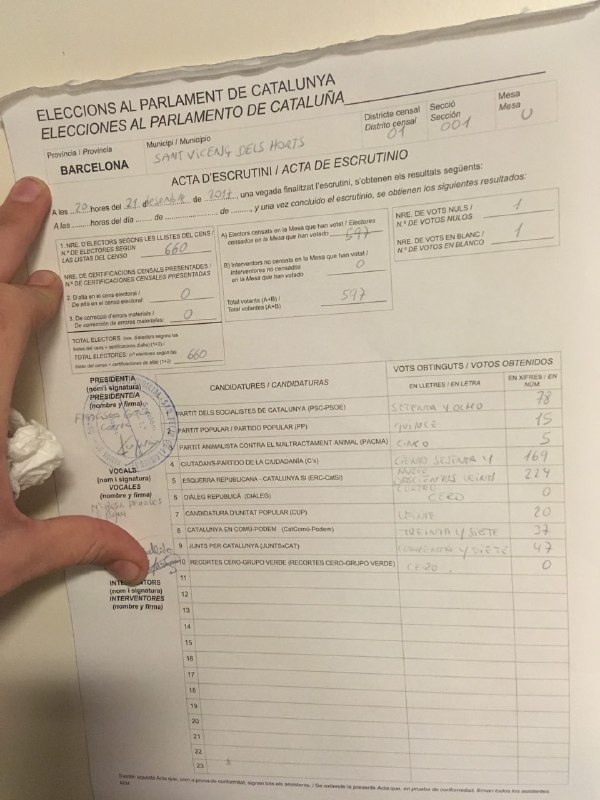 ELECCIONS AL PARLAMENT DE CATALUNYA
ELECCIONES AL PARLAMENTO DE CATALUÑA
Província / Provincia
BARCELONA
Municipi / Municipio
SANT VICENÇ DELS HORTS
Districte censal
Distrito censal
01
Secció
Sección
001
Mesa
Mesa
U
ACTA D'ESCRUTINI / ACTA DE ESCRUTINIO
A les 20 hores del 21 desembre de 2017, una vegada finalitzat l'escrutini, s'obtenen els resultats següents:
A las hores del día de de , y una vez concluido el escrutinio, se obtienen los siguientes resultados:
1. NRE. D'ELECTORS SEGONS LES LLISTES DEL CENS /
N.º DE ELECTORES SEGÚN
LAS LISTAS DEL CENSO 660
NRE. DE CERTIFICACIONS CENSALS PRESENTADES /
N.º DE CERTIFICACIONES CENSALES PRESENTADAS
2. D'alta en el cens electoral /
De alta en el censo electoral: 0
3. De correcció d'errors materials /
De corrección de errores materiales: 0
TOTAL ELECTORS: (nre. d'electors segons les
llistes del cens + certificacions d'alta) (1+2) /
TOTAL ELECTORES: (nº electores según las
listas del censo + certificaciones de alta) (1+2) 660
A) Electors censats en la Mesa que han votat / Electores
censados en la Mesa que han votado 597
B) Interventors no censats en la Mesa que han votat /
Interventores no censados
en la Mesa que han votado 0
Total votants (A+B) /
Total votantes (A+B) 597
NRE. DE VOTS NULS /
N.º DE VOTOS NULOS 1
NRE. DE VOTS EN BLANC /
N.º DE VOTOS EN BLANCO 1
PRESIDENT/A
(nom i signatura)
PRESIDENTE/A
(nombre y firma)
VOCALS
(nom i signatura)
VOCALES
(nombre y firma)
(nom i signatura)
INTERVENTORES
(nombre y firma)
CANDIDATURES / CANDIDATURAS
VOTS OBTINGUTS / VOTOS OBTENIDOS
EN LLETRES / EN LETRA
EN XIFRES / EN NÚM.
PARTIT DELS SOCIALISTES DE CATALUNYA (PSC-PSOE) SETENTA Y OCHO 78
PARTIT POPULAR / PARTIDO POPULAR (PP) QUINCE 15
PARTIT ANIMALISTA CONTRA EL MALTRACTAMENT ANIMAL (PACMA) CINCO 5
4 CIUTADANS-PARTIDO DE LA CIUDADANÍA (C's) CIENTO SESENTA Y NUEVE 169
5 ESQUERRA REPUBLICANA - CATALUNYA SÍ (ERC-CatSí) DOSCIENTOS VEINTI CUATRO 224
6 DIÀLEG REPUBLICÀ (DIÀLEG) CERO 0
7 CANDIDATURA D'UNITAT POPULAR (CUP) VEINTE 20
8 CATALUNYA EN COMÚ-PODEM (CatComú-Podem) TREINTA Y SIETE 37
9 JUNTS PER CATALUNYA (JUNTSxCAT) CUARENTA Y SIETE 47
10 RECORTES CERO-GRUPO VERDE (RECORTES CERO-GRUPO VERDE) CERO 0
11
12
13
14
15
16
17
18
19
20
21
22
23